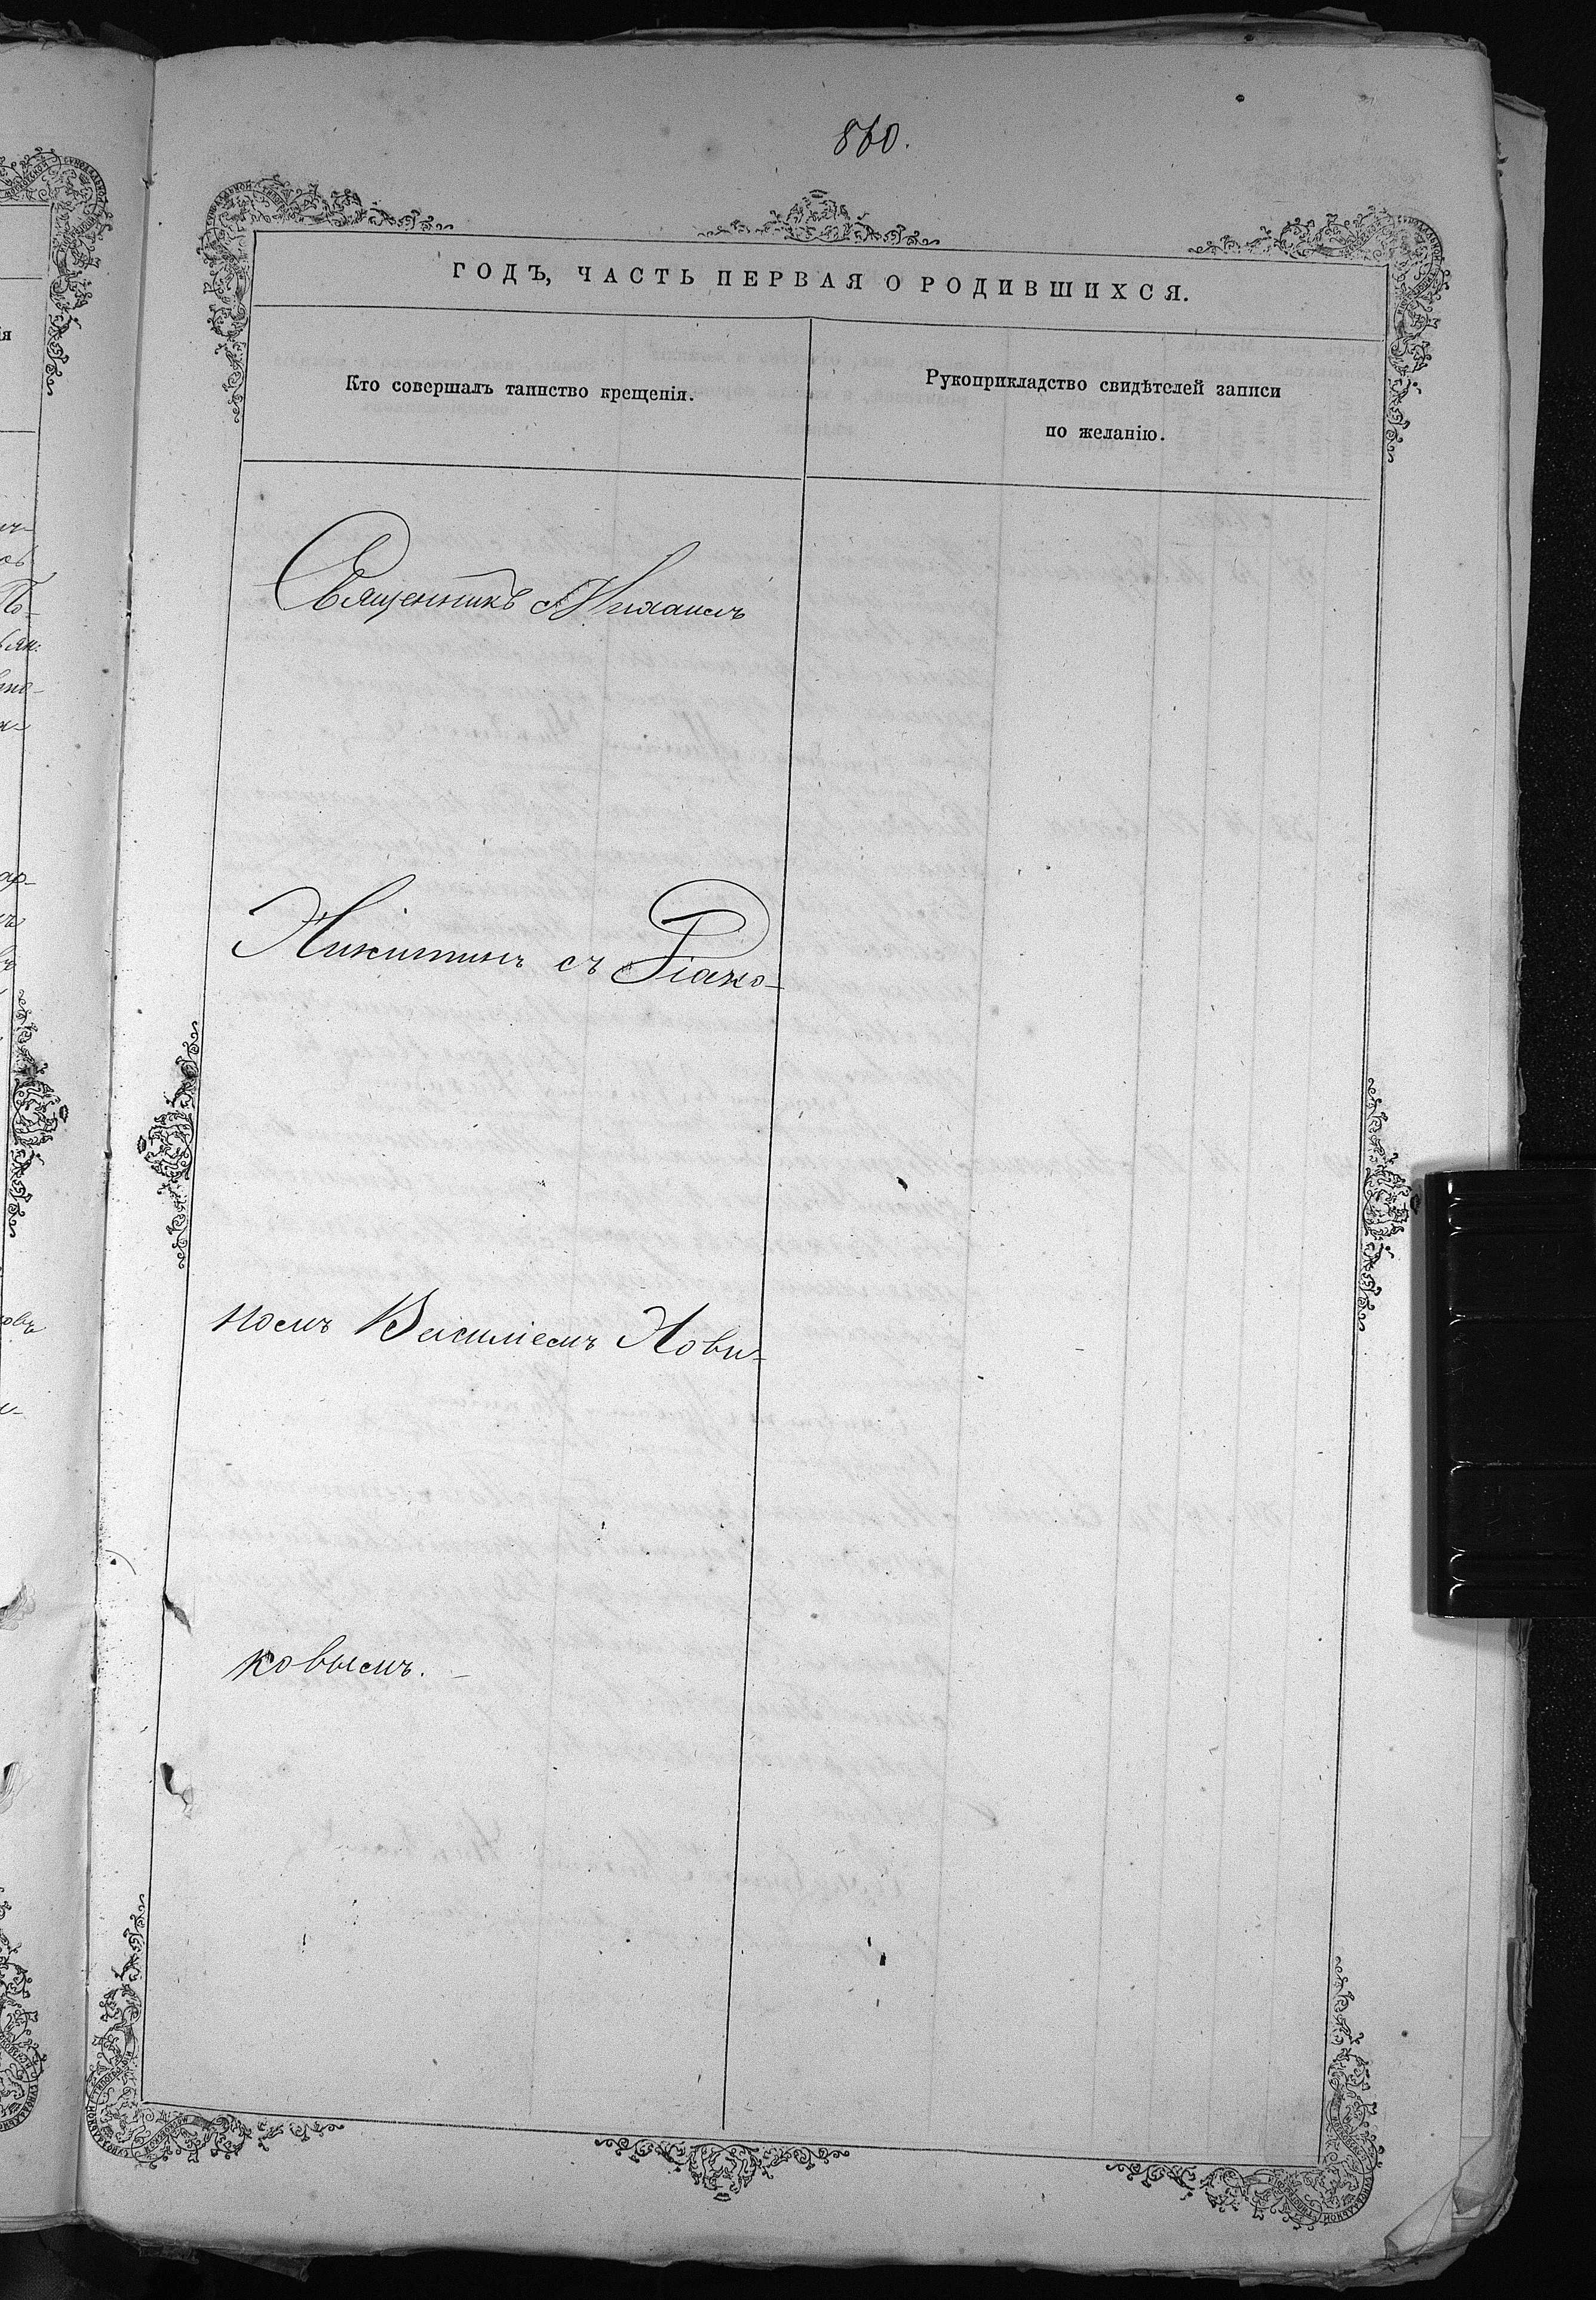 860.
ГОДЪ, ЧАСТЬ ПЕРВАЯ О РОДИВШИХСЯ.
Кто совершалъ таинство крещенія.
Рукоприкладство свидѣтелей записи
по желанію.
Священникъ Михаилъ
Никитинъ съ Діако-
номъ Василіемъ Нови-
ковымъ.